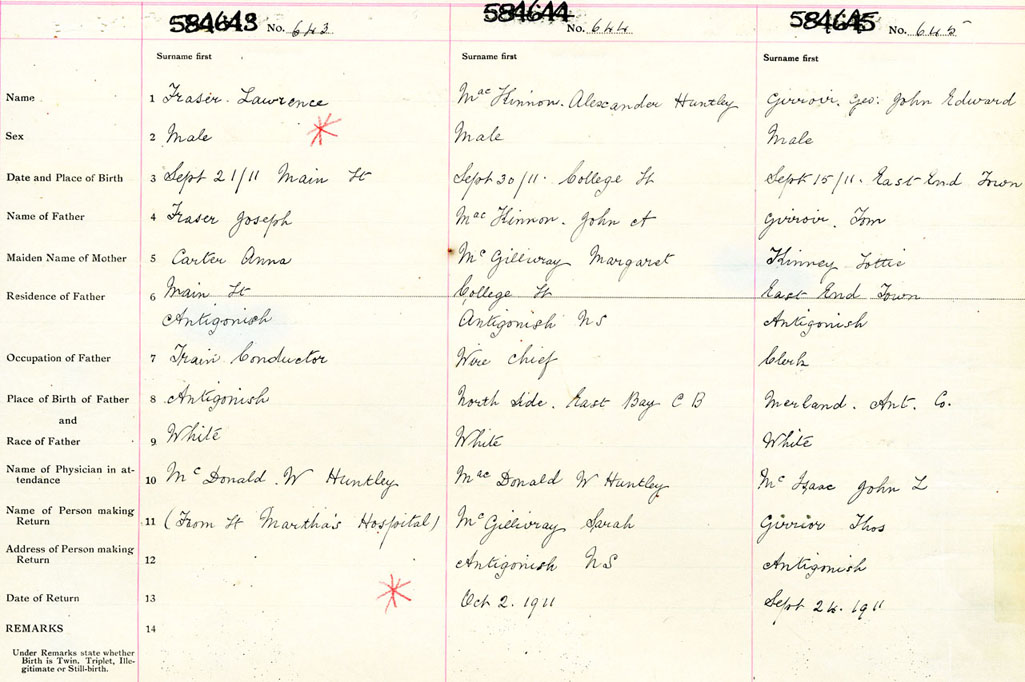 584643 No. 643 584644 No. 644 584645 No. 645
Surname first Surname first Surname first
Name 1 Fraser. Lawrence MacKinnon. Alexander Huntley Girroir, Geo. John Edward
Sex 2 Male Male Male
Date and Place of Birth 3 Sept 21/11 Main St Sept 30/11. College St Sept 15/11. East End Town
Name of Father 4 Fraser Joseph MacKinnon. John A Girroir. Tom
Maiden Name of Mother 5 Carter Anna McGillivray Margaret Kinney Lottie
Residence of Father 6 Main St College St East End Town
Antigonish Antigonish NS Antigonish
Occupation of Father 7 Train Conductor Wire Chief Clerk
Place of Birth of Father 8 Antigonish North Side. East Bay C B Merland. Ant. Co.
and
Race of Father 9 White White White
Name of Physician in at-
tendance 10 McDonald. W Huntley MacDonald W Huntley McIsaac John L
Name of Person making
Return 11 (From St Martha's Hospital) McGillivray Sarah Girrior Thos
Address of Person making
Return 12 Antigonish NS Antigonish
Date of Return 13 Oct 2. 1911 Sept 26. 1911
REMARKS 14
Under Remarks state whether
Birth is Twin. Triplet, Ille-
gitimate or Still-birth.